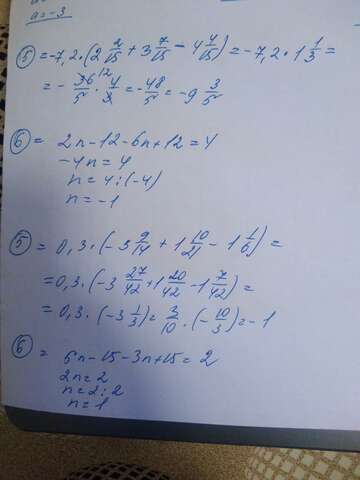 a = -3
⑤ = -7,2·(2 2/15 + 3 7/15 - 4 4/15) = -7,2·1 1/3 =
= - 36/5 · 4/3 = -48/5 = -9 3/5
12
⑥ = 2n-12-6n+12=4
-4n=4
n=4:(-4)
n=-1
⑤ = 0,3·(-3 9/14 + 1 10/21 - 1 1/6) =
=0,3·(-3 27/42 + 1 20/42 - 1 7/42) =
= 0,3·(-3 1/3) = 3/10 · (- 10/3) = -1
⑥ = 5n-15-3n+15=2
2n=2
n=2:2
n=1